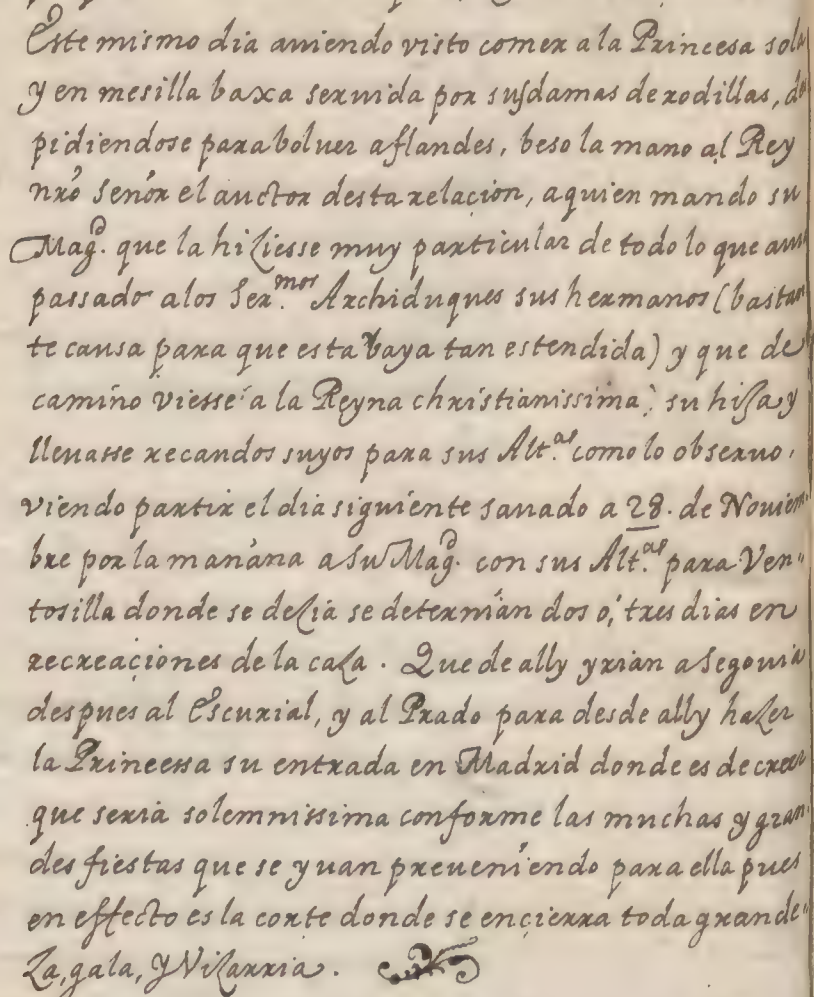 Este mismo dia auiendo visto comer a la Princesa sola
y en mesilla baxa seruida por sus damas de rodillas, des
pidiendose para boluer a flandes, beso la mano al Rey
nrõ Señor el auctor desta relaçion, a quien mando su
Magd. que la hiziesse muy particular de todo lo que auia
passado a los Sermos Archiduques sus hermanos (bastan
te causa para que esta vaya tan estendida) y que de
camino viesse a la Reyna christianissima, su hija y
lleuasse recaudos suyos para sus Alt.as como lo obseruo,
viendo partir el dia siguiente sauado a 28. de Nouiem
bre por la mañana a su Magd. con sus Alt.as para Ven=
tosilla donde se dezia se deternian dos o, tres dias en
recreaçiones de la caza. Que de ally yrian a Segouia
despues al Escurial, y al Prado para desde ally hazer
la Princessa su entrada en Madrid donde es de creer
que seria solemnissima conforme las muchas y gran
des fiestas que se yuan preueniendo para ella pues
en effecto es la corte donde se ençierra toda grande=
za, gala, y Vizarria.